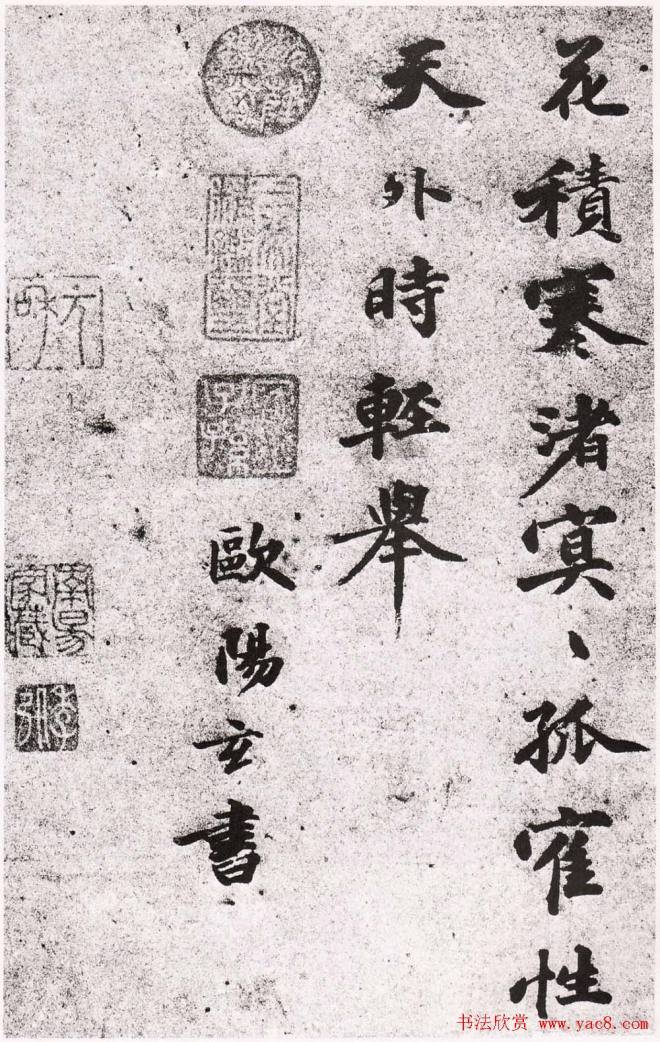 花積寒渚寞、孤隺性
天外時輊舉
歐陽玄書
书法欣赏 www.yac8.com